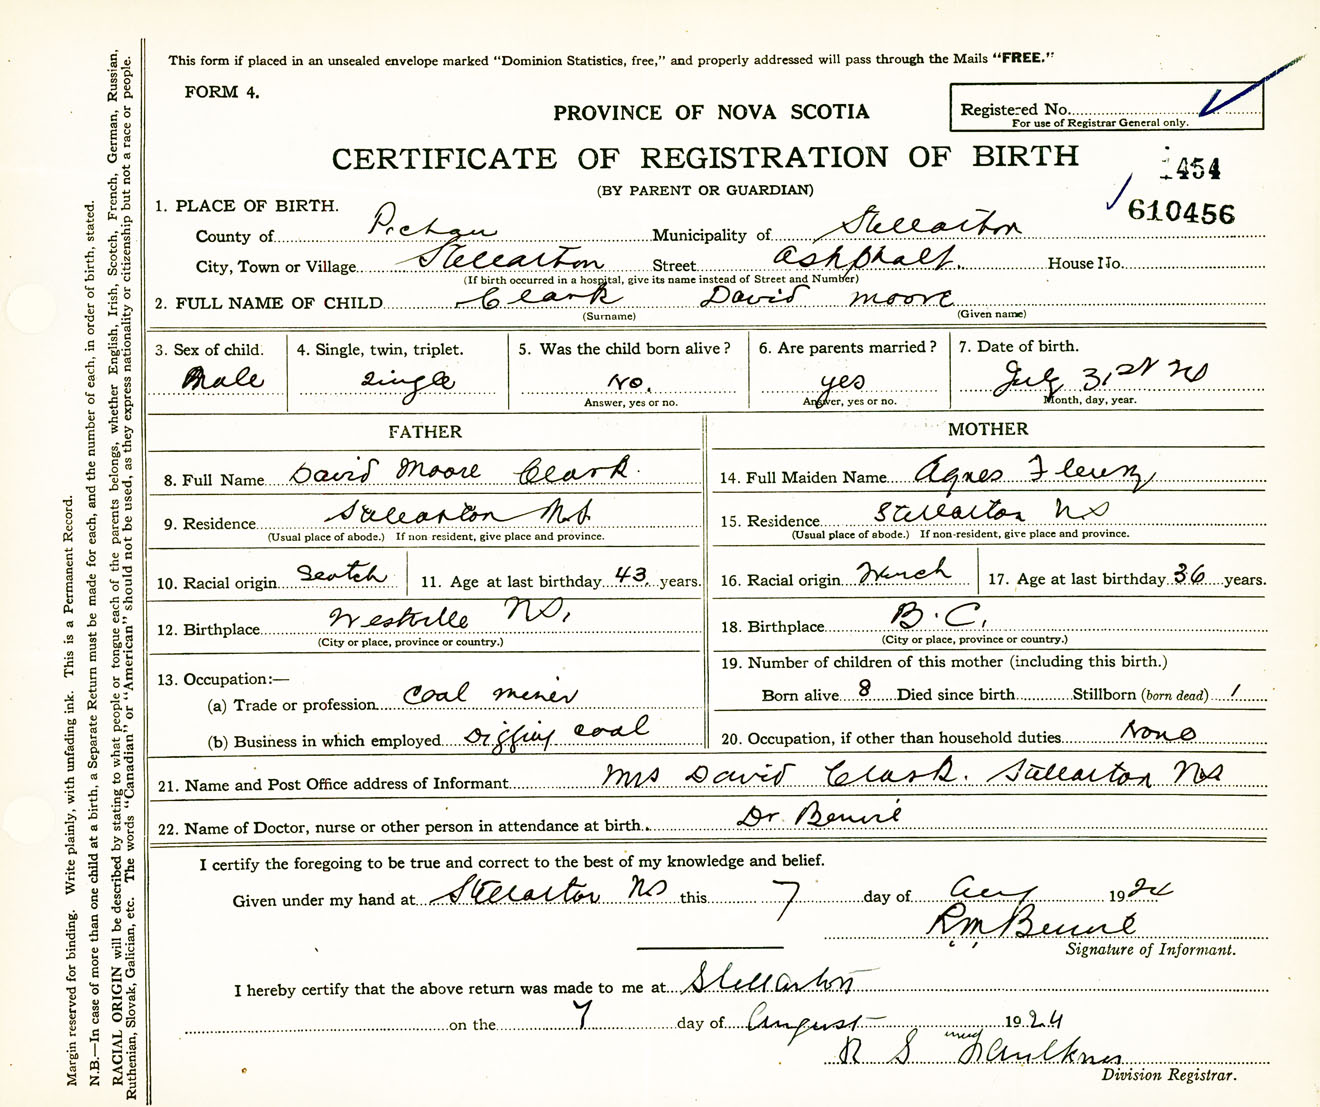 This form if placed in an unsealed envelope marked "Dominion Statistics, free," and properly addressed will pass through the Mails "FREE."
FORM 4.
PROVINCE OF NOVA SCOTIA
Registered No.
For use of Registrar General only.
CERTIFICATE OF REGISTRATION OF BIRTH
454
(BY PARENT OR GUARDIAN)
610456
1. PLACE OF BIRTH.
County of Pictou Municipality of Stellarton
City, Town or Village Stellarton Street Ashphalt. House No.
(If birth occurred in a hospital, give its name instead of Street and Number)
2. FULL NAME OF CHILD Clark David Moore
(Surname) (Given name)
3. Sex of child. 4. Single, twin, triplet. 5. Was the child born alive? 6. Are parents married? 7. Date of birth.
Male Single No. yes July 31st
Answer, yes or no. Answer, yes or no. Month, day, year.
FATHER MOTHER
8. Full Name David Moore Clark 14. Full Maiden Name Agnes
9. Residence Stellarton N.S. 15. Residence Stellarton NS
(Usual place of abode.) If non resident, give place and province. (Usual place of abode.) If non-resident, give place and province.
10. Racial origin Scotch 11. Age at last birthday 43 years. 16. Racial origin 17. Age at last birthday 36 years.
12. Birthplace Westville NS. 18. Birthplace B.C.
(City or place, province or country.) (City or place, province or country.)
13. Occupation:— 19. Number of children of this mother (including this birth.)
(a) Trade or profession Coal miner Born alive 8 Died since birth Stillborn (born dead) 1
(b) Business in which employed Digging coal 20. Occupation, if other than household duties None
21. Name and Post Office address of Informant Mrs David Clark. Stellarton NS
22. Name of Doctor, nurse or other person in attendance at birth Dr. Benvie
I certify the foregoing to be true and correct to the best of my knowledge and belief.
Given under my hand at Stellarton NS this 7 day of Aug 1924
R M Benvie
Signature of Informant.
I hereby certify that the above return was made to me at Stellarton
on the 7 day of August 1924
R S Faulkner
Division Registrar.
Margin reserved for binding. Write plainly, with unfading ink. This is a Permanent Record.
N.B.—In case of more than one child at a birth, a Separate Return must be made for each, and the number of each, in order of birth, stated.
RACIAL ORIGIN will be described by stating to what people or tongue each of the parents belongs, whether English, Irish, Scotch, French, German, Russian,
Ruthenian, Slovak, Galician, etc. The words "Canadian" or "American" should not be used, as they express nationality or citizenship but not a race or people.